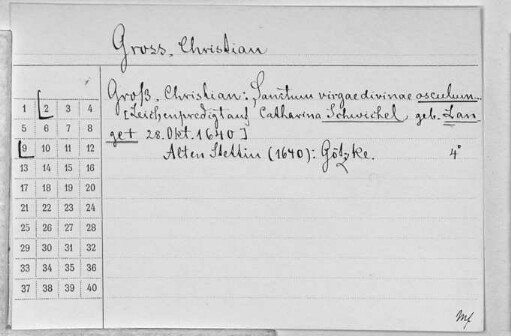 Gross, Christian
Groß, Christian: Sanctum virgae divinae osculum...
[Leichenpredigt auf Catharina Schwichel geb. Lan
get 28. Okt. 1640]
Alten Stettin (1640): Götzke. 4°
1 2 3 4
5 6 7 8
9 10 11 12
13 14 15 16
17 18 19 20
21 22 23 24
25 26 27 28
29 30 31 32
33 34 35 36
37 38 39 40